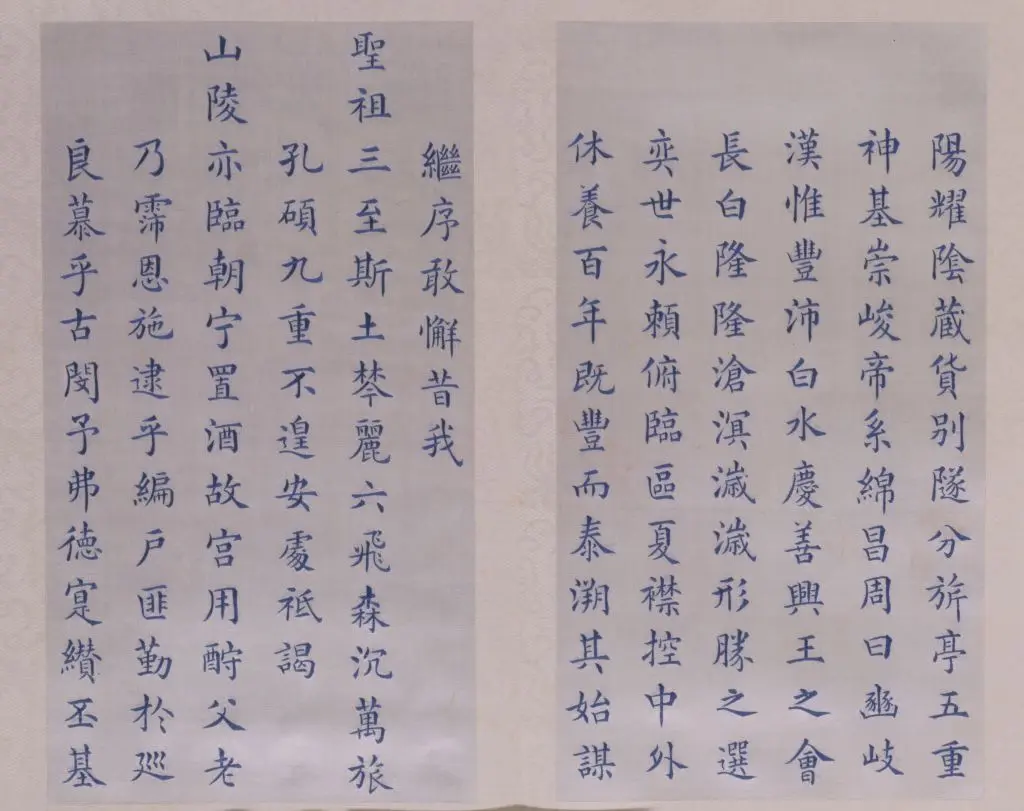 陽耀陰蔵貨別隧分旂亭五重
神基崇峻帝系綿昌周曰豳岐
漢惟豐沛白水慶善興王之會
長白隆隆滄溟濊濊形勝之選
奕世永賴俯臨區夏襟控中外
休養百年既豐而泰溯其始謀
繼序敢懈昔我
聖祖三至斯土棽麗六飛森沉萬旅
孔碩九重不遑安處祗謁
山陵亦臨朝宁置酒故宮用酧父老
乃霈恩施逮乎編戶匪勤於廵
良慕乎古閔予弗德寔纘丕基